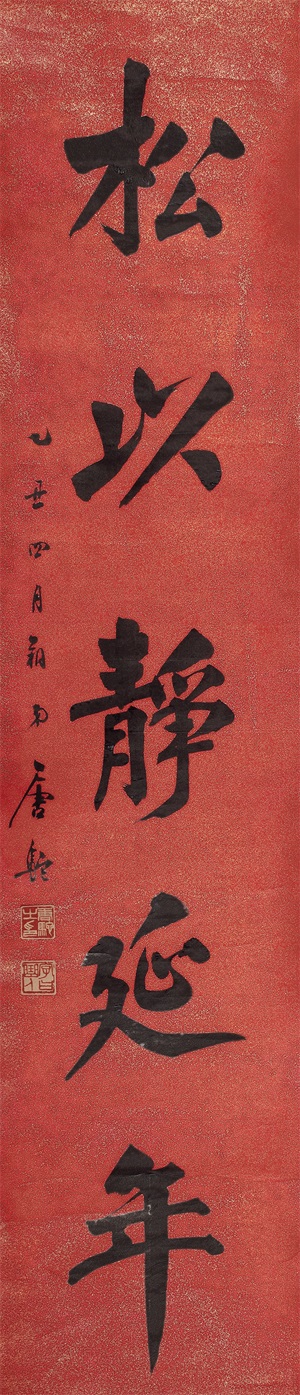 松以靜延年
乙丑四月
唐駝